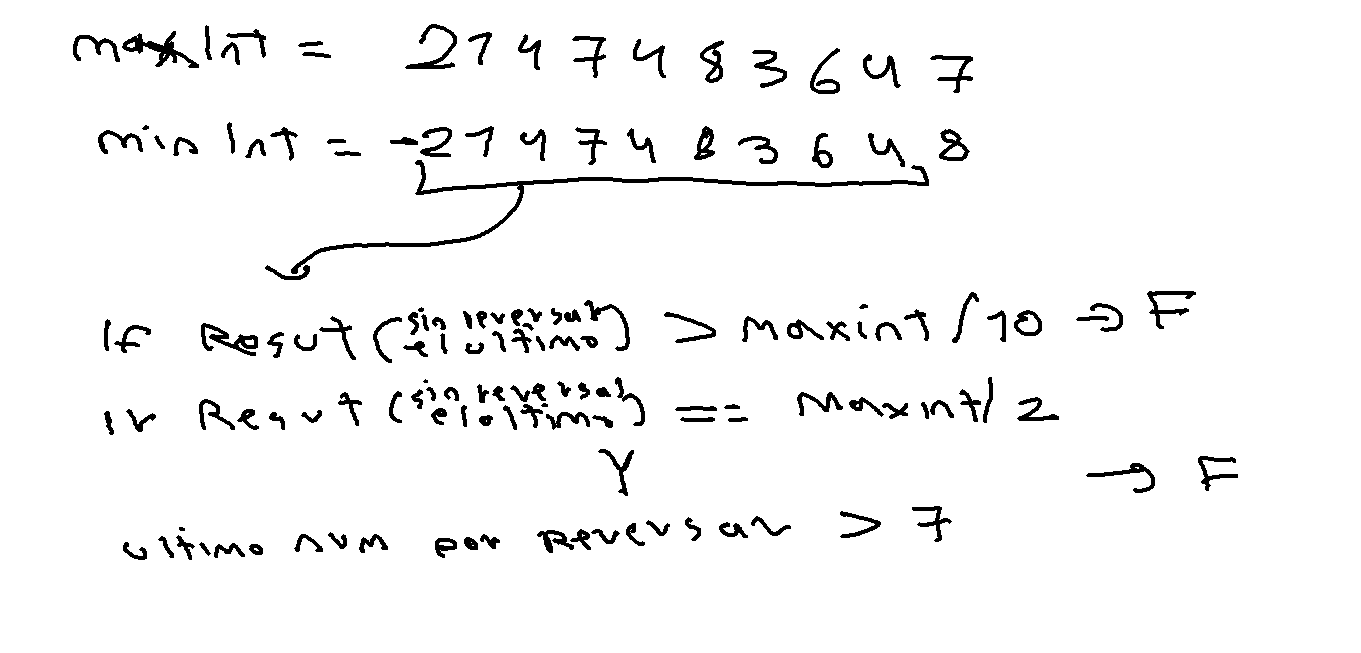 maxInt = 2147483647
minInt = -2147483648
If Resut (sin reversar el ultimo) > maxint/10 → F
If Resut (sin reversar el ultimo) == maxint/2
Y → F
ultimo num por Reversar > 7